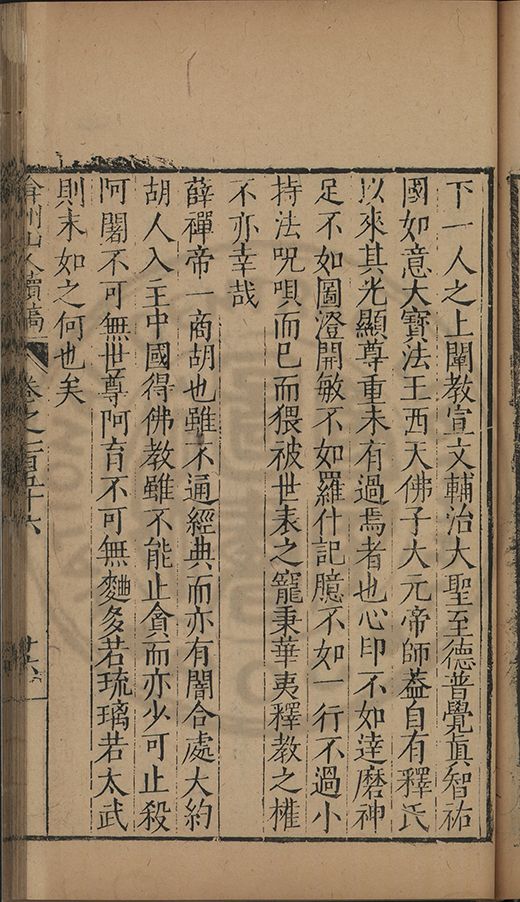 下一人之上闡教宣文輔治大聖至德普覺眞智祐
國如意大寶法王西天佛子大元帝師葢自有釋氏
以來其光顯尊重未有過焉者也心印不如達磨神
足不如圖澄開敏不如羅什記臆不如一行不過小
持法呪唄而已而猥被世表之寵秉華夷釋教之權
不亦幸哉
薛禪帝一商胡也雖不通經典而亦有闇合處大約
胡人入主中國得佛教雖不能止貪而亦少可止殺
阿闍不可無世尊阿育不可無麯多若琉璃若太武
則末如之何也矣
弇州山人續稿 卷之一百五十六 廿六